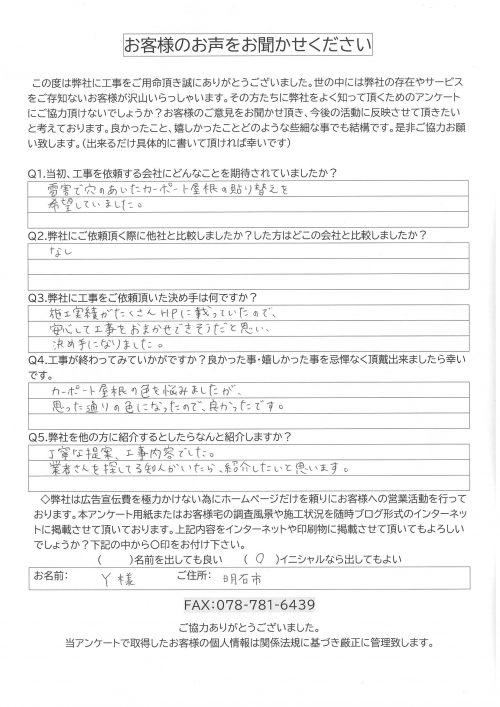 お客様のお声をお聞かせください
この度は弊社に工事をご用命頂き誠にありがとうございました。世の中には弊社の存在やサービス
をご存知ないお客様が沢山いらっしゃいます。その方たちに弊社をよく知って頂くためのアンケート
にご協力頂けないでしょうか？お客様のご意見をお聞かせ頂き、今後の活動に反映させて頂きたい
と考えております。良かったこと、嬉しかったことどのような些細な事でも結構です。是非ご協力お願
い致します。（出来るだけ具体的に書いて頂ければ幸いです）
Q1.当初、工事を依頼する会社にどんなことを期待されていましたか？
雪害で穴のあいたカーポート屋根の貼り替えを
希望していました。
Q2.弊社にご依頼頂く際に他社と比較しましたか？した方はどこの会社と比較しましたか？
なし
Q3.弊社に工事をご依頼頂いた決め手は何ですか？
施工実績がたくさんHPに載っていたので、
安心して工事をおまかせできそうだと思い、
決め手になりました。
Q4.工事が終わってみていかがですか？良かった事・嬉しかった事を忌憚なく頂戴出来ましたら幸い
です。
カーポート屋根の色を悩みましたが、
思った通りの色になったので、良かったです。
Q5.弊社を他の方に紹介するとしたらなんと紹介しますか？
丁寧な提案、工事内容でした。
業者さんを探してる知人がいたら、紹介したいと思います。
◇弊社は広告宣伝費を極力かけない為にホームページだけを頼りにお客様への営業活動を行って
おります。本アンケート用紙またはお客様宅の調査風景や施工状況を随時ブログ形式のインターネッ
トに掲載させて頂いております。上記内容をインターネットや印刷物に掲載させて頂いてもよろしい
でしょうか？下記の中から〇印をお付け下さい。
（　　）名前を出しても良い　（ 〇 ）イニシャルなら出してもよい
お名前：　Y 様　ご住所：　明石市
FAX:078-781-6439
ご協力ありがとうございました。
当アンケートで取得したお客様の個人情報は関係法規に基づき厳正に管理致します。